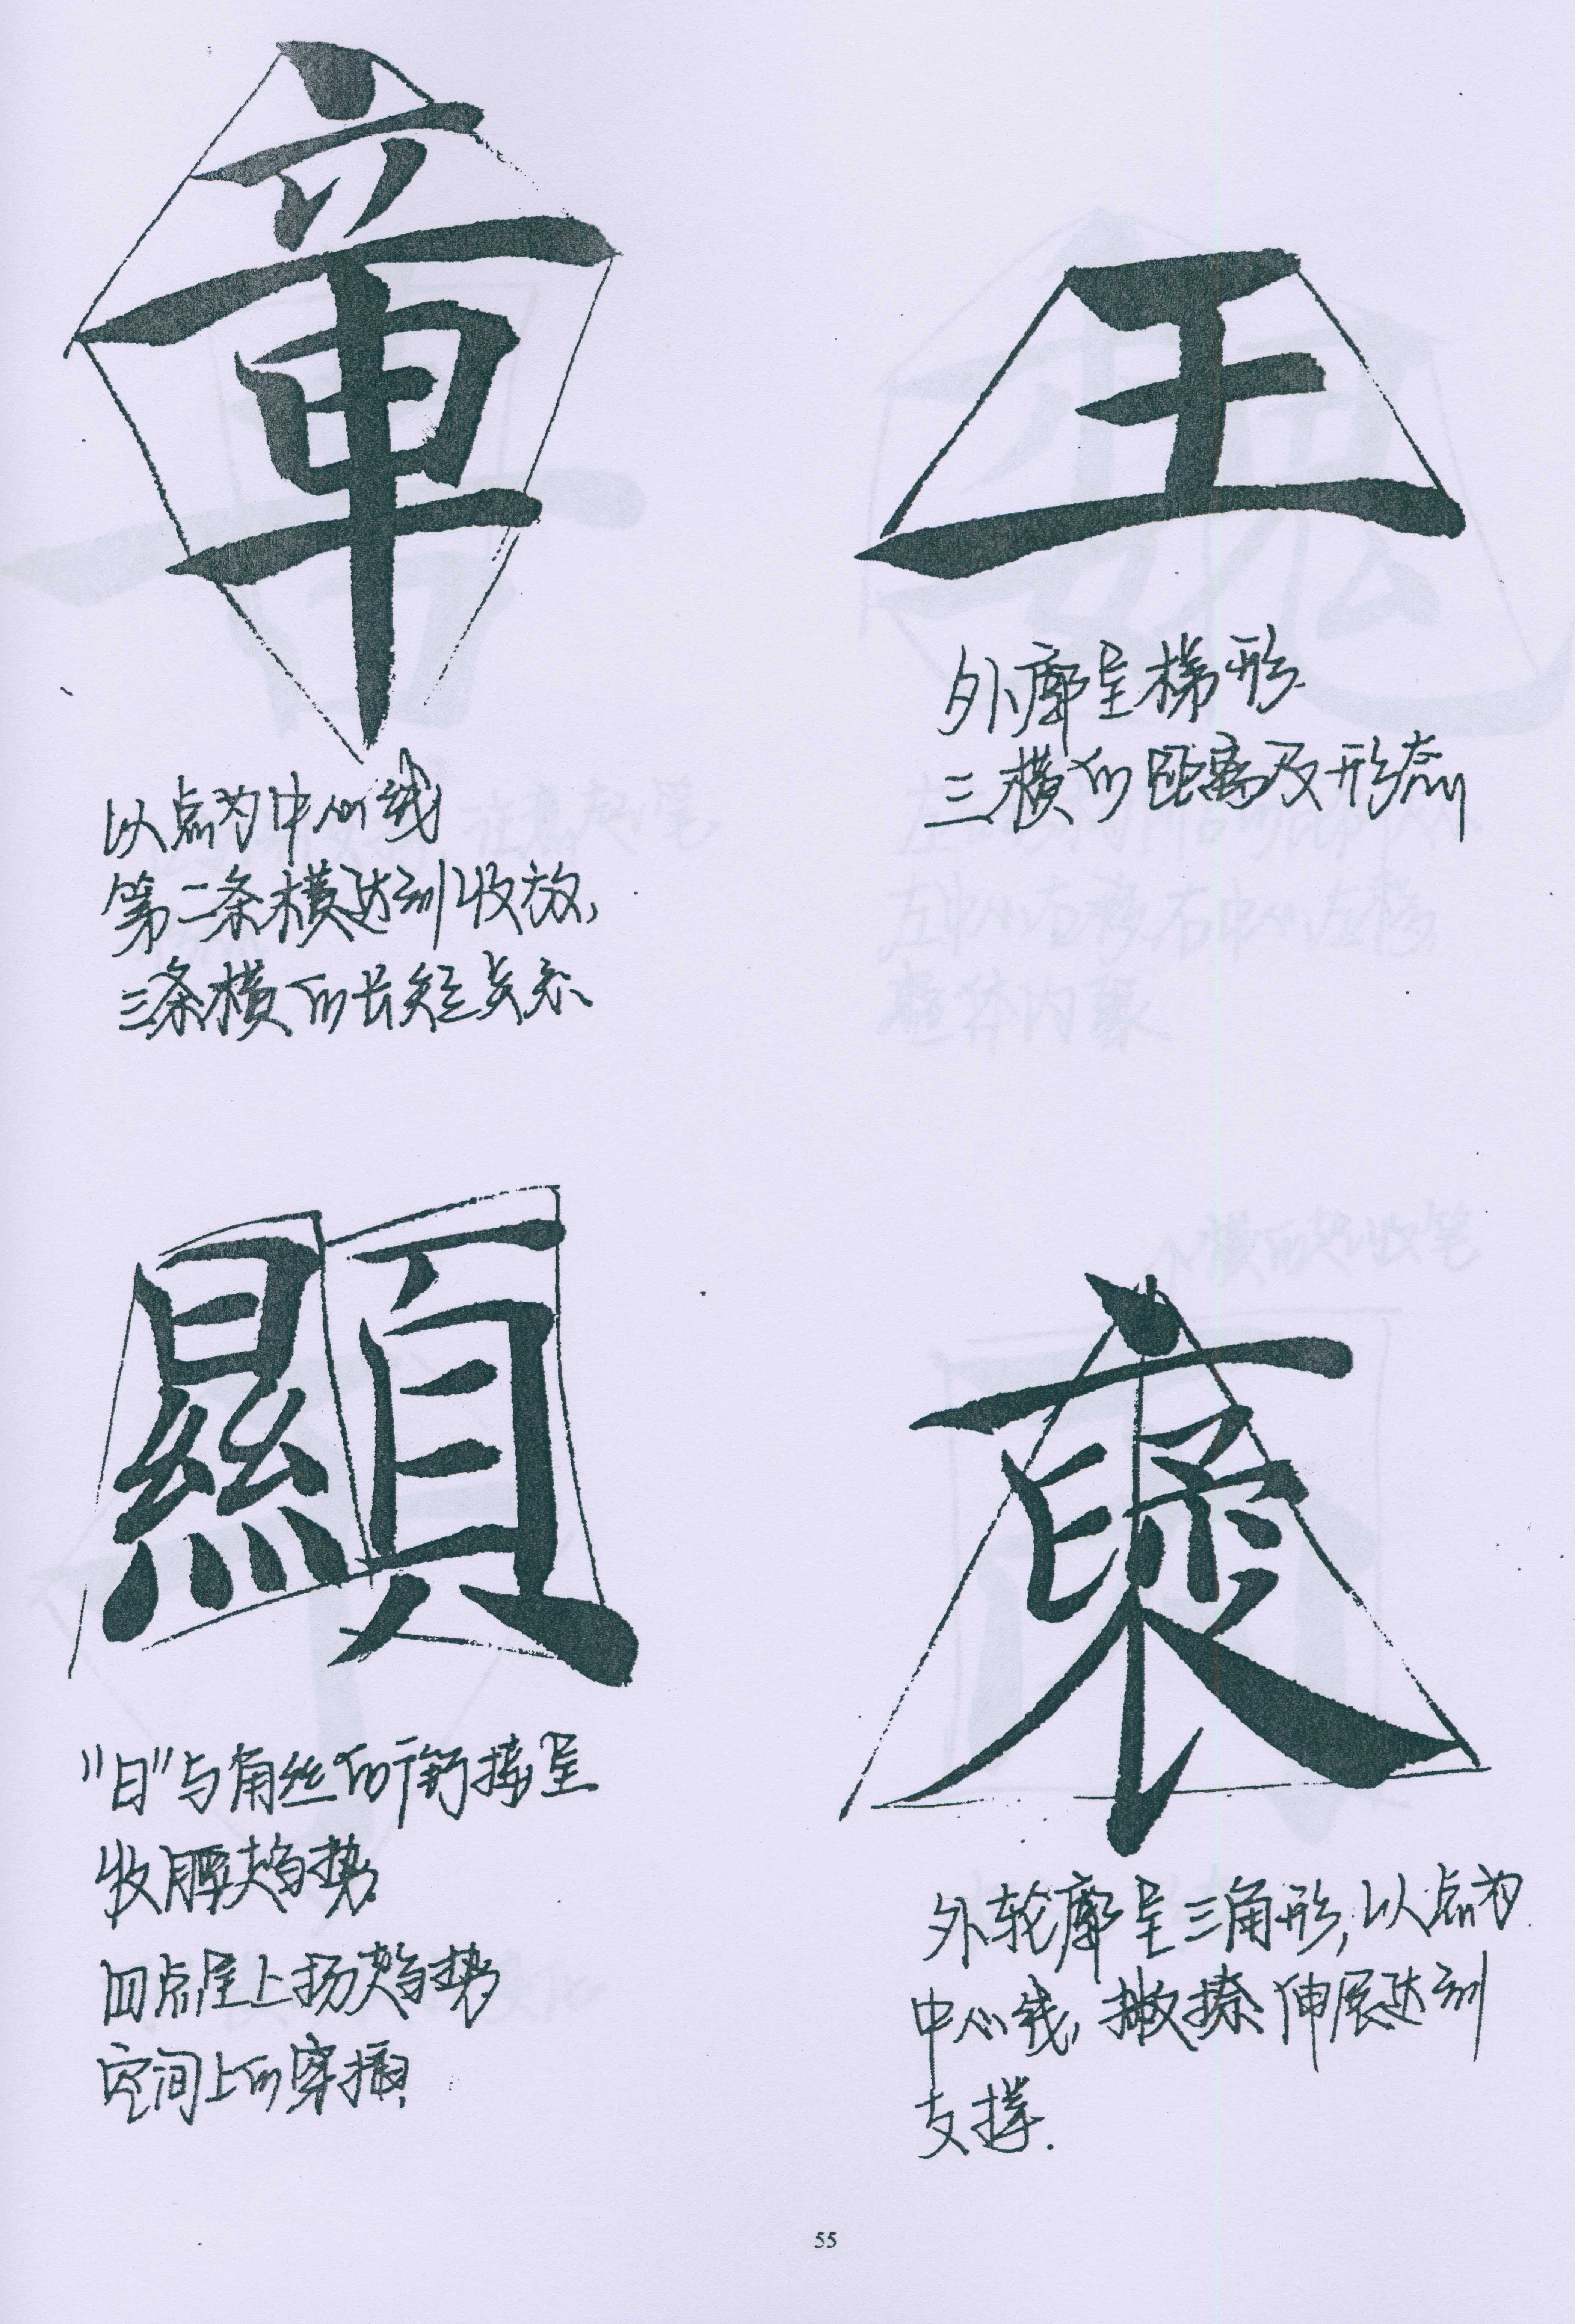 章
以点为中心线
第二条横达到收放,
三条横的长短关系
王
外廓呈梯形.
三横的距离及形态
顯
"日"与角丝的衔接呈
收腰趋势
四点呈上扬趋势
空间上的穿插
褒
外轮廓呈三角形,以点为
中心线,撇捺伸展达到
支撑.
55